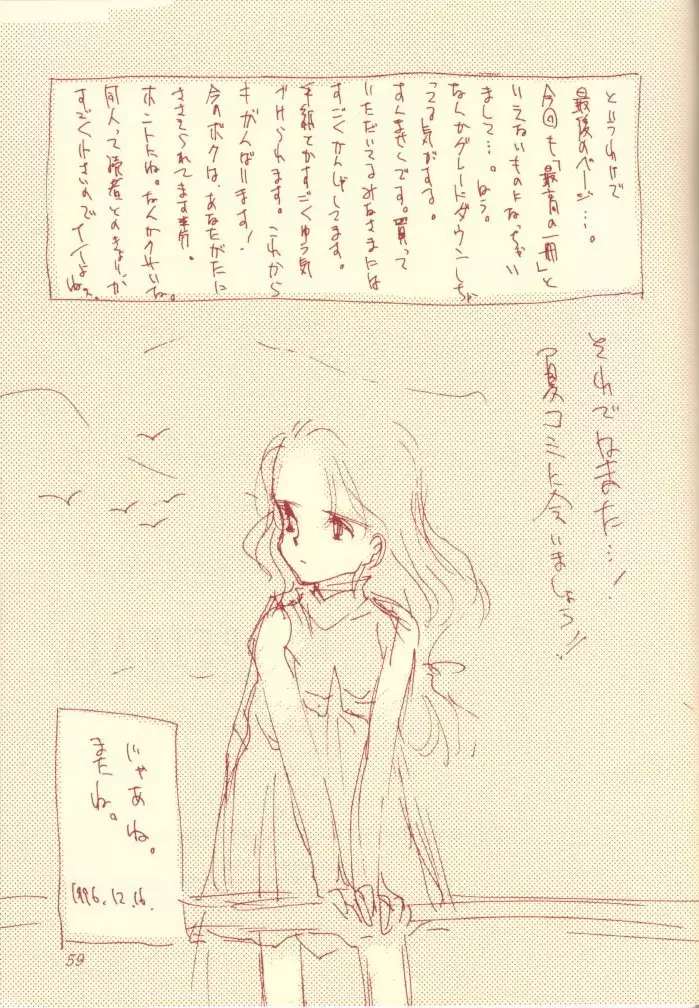 というわけで
最後のページ…。
今回も「最高の一冊」と
いえないものになっちゃい
まして…。はう。
なんかグレードダウンしちゃ
ってる気がする。
すんませんです。買って
いただいてるみなさまには
すごくかんしゃしてます。
手紙とかすごくゆう気
づけられます。これから
もがんばります!
今のボクは、あなたがたに
ささえられてます。
ホントだね。なんかクサいね。
同人って読者とのきょりが
すごく小さいのでイイよねぇ。
それではまた…!
夏コミに会いましょう!!
じゃあね。
またね。
1996.12.16.
59